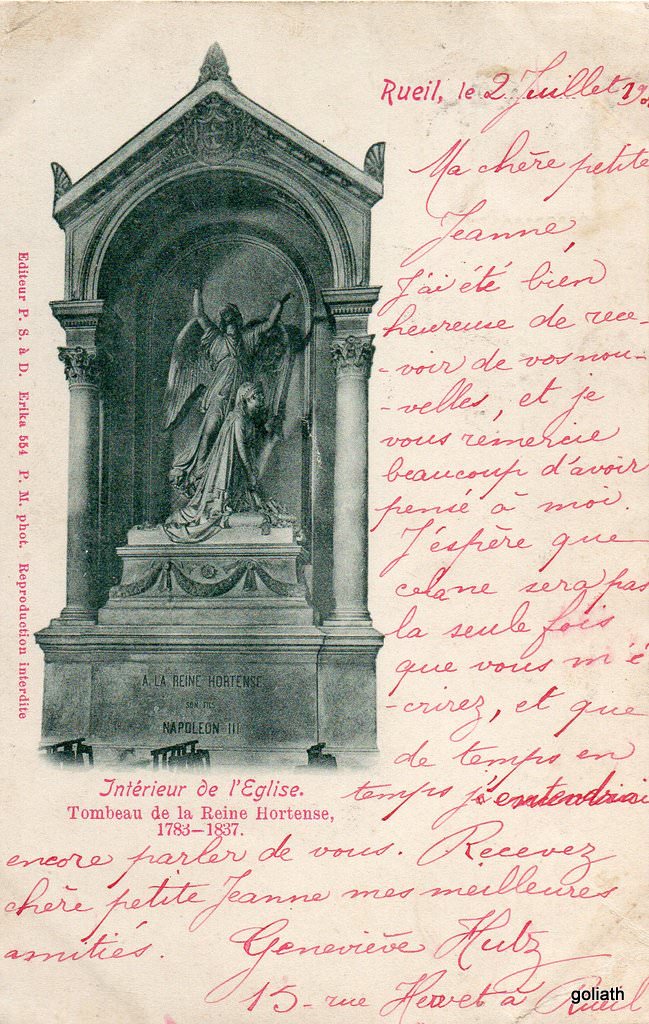 Rueil, le 2 Juillet 190
Ma chère petite
Jeanne
J'ai été bien
heureuse de rece-
-voir de vos nou-
-velles, et je
vous remercie
beaucoup d'avoir
pensé à moi.
J'espère que
cela ne sera pas
la seule fois
que vous m'é
-crirez, et que
de temps en
temps j'entendrai
encore parler de vous. Recevez
chère petite Jeanne mes meilleures
amitiés. Geneviève
15 - rue Hervet à Rueil
A LA REINE HORTENSE
SON FILS
NAPOLEON III
Intérieur de l'Eglise.
Tombeau de la Reine Hortense,
1783—1837.
Editeur P. S. à D. Erika 554 P. M. phot. Reproduction interdite
goliath